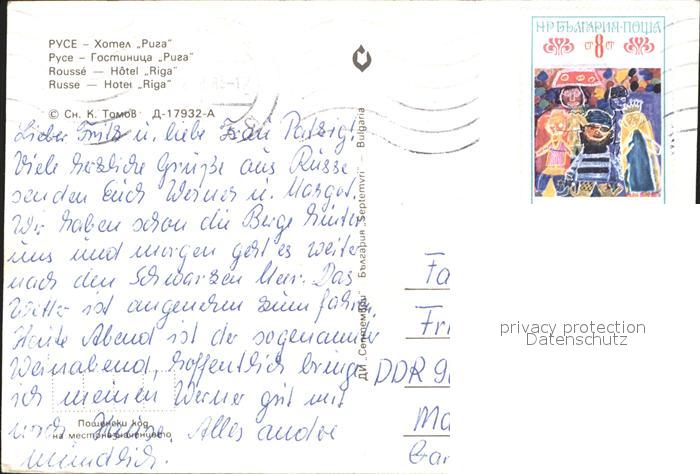 РУСЕ – Хотел „Рига"
Русе – Гостиница „Рига"
Roussé – Hôtel „Riga"
Russe – Hotel „Riga"
© Сн. К. Томов Д-17932-А
Lieber Fritz u. liebe Frau
Viele herzliche Grüße aus Russe
senden Euch Werner u. Margot.
Wir haben schon die Berge hinter
uns und morgen geht es weiter
nach den Schwarzen Meer. Das
Wetter ist angenehm zum fahren
Heute Abend ist der sogenannte
Weinabend, hoffentlich bringe
ich meinen Werner gut mit
nach Hause. Alles andre
mündlich.
Пощенски код
на местоназначението
ДИ „Септември" България „Septemvri" – Bulgaria
НР БЪЛГАРИЯ·ПОЩА
СТ 8 СТ
Fa
Fri
DDR 9
Ma
Gar
privacy protection
Datenschutz